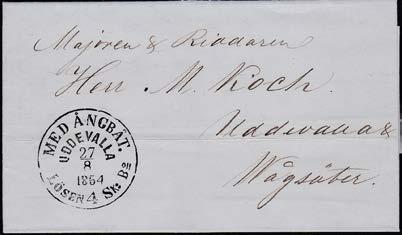 Majoren & Riddaren
Herr M. Koch.
Uddevalla &
Wågsäter.
MED ÅNGBÅT.
UDDEVALLA
27
8
1854
LÖSEN 4 Sk. Bco